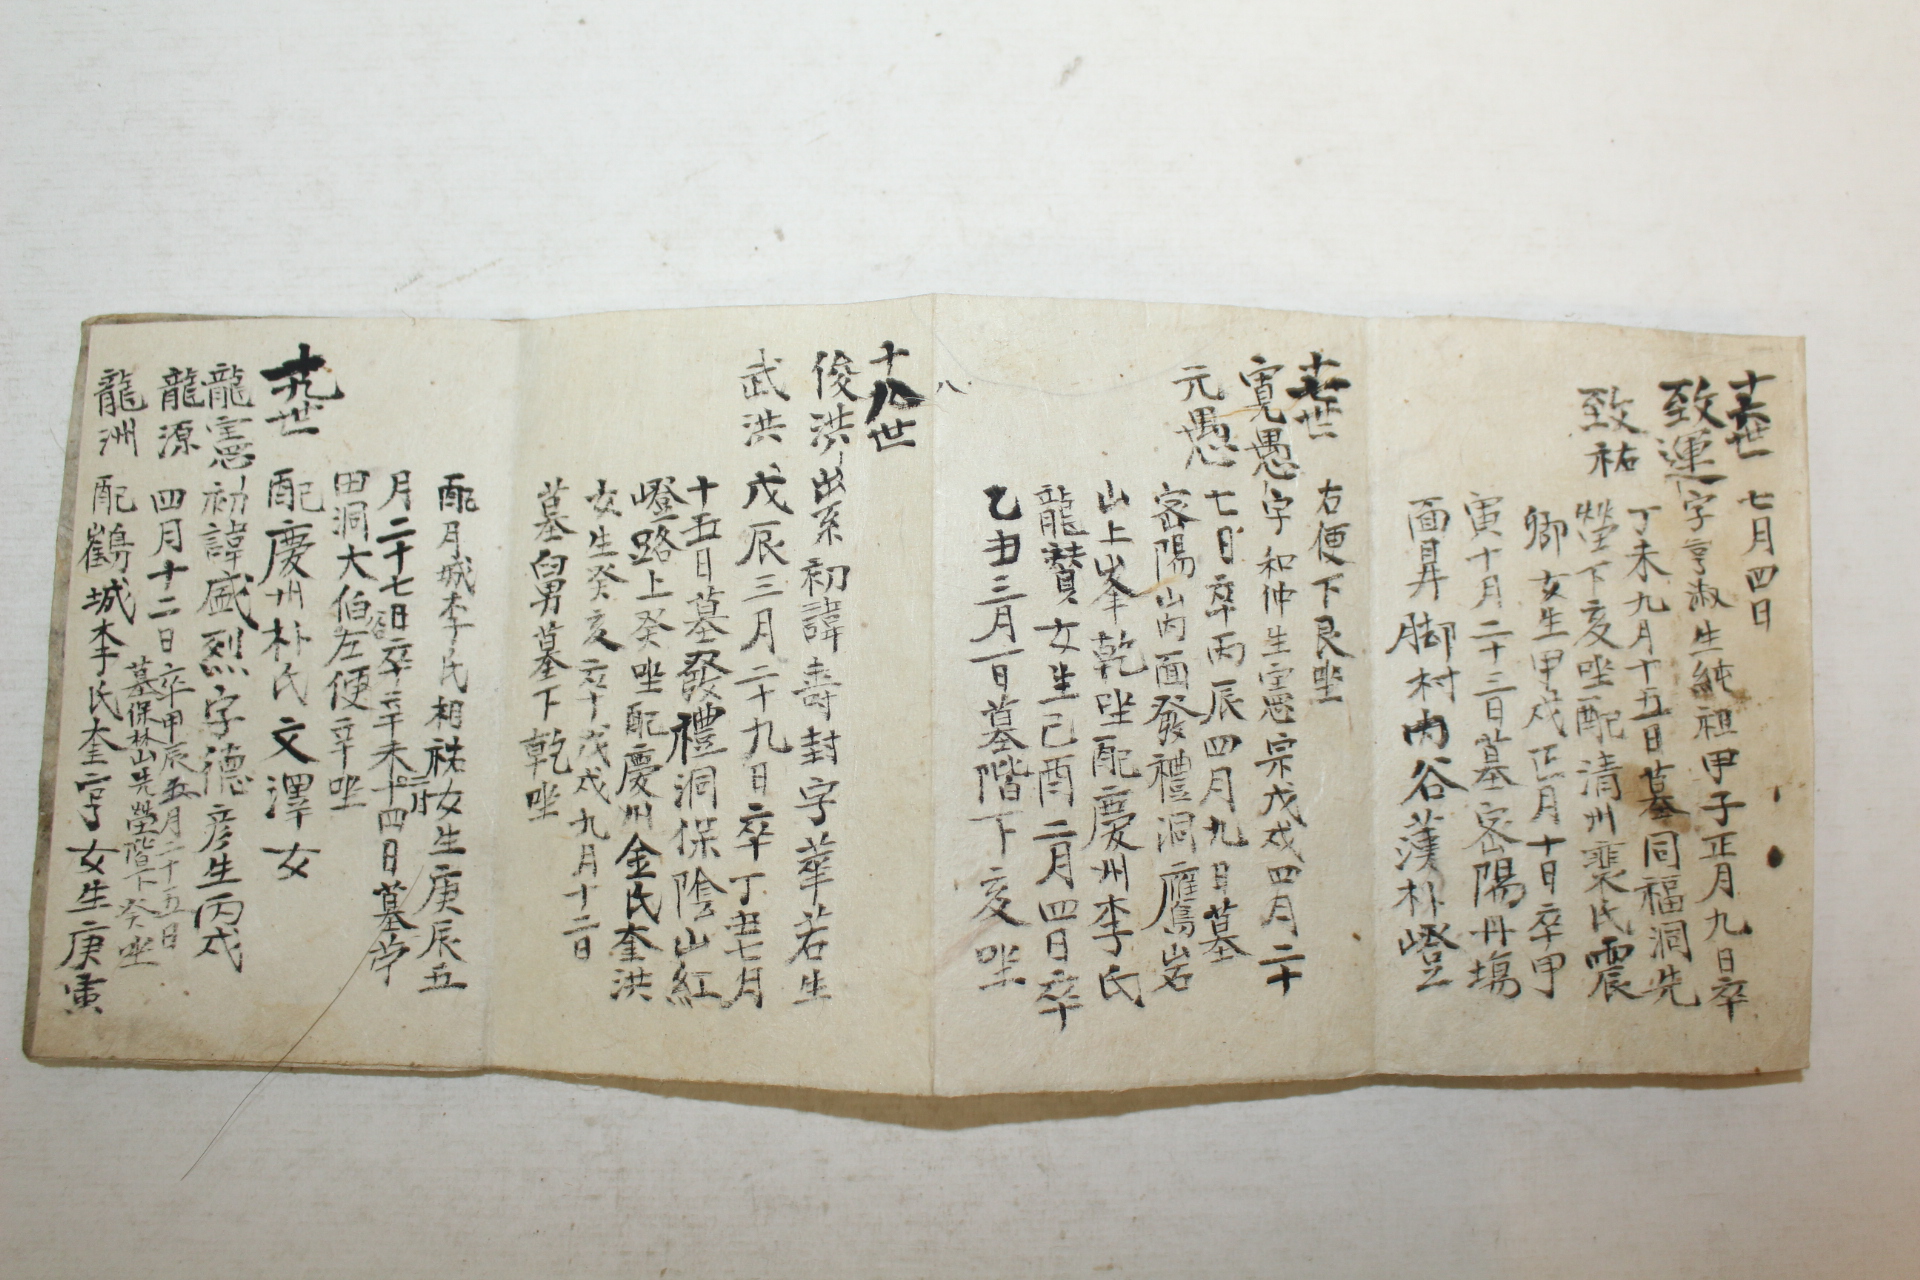 十六世 七月四日
致運字亨淑生純祖甲子正月九日卒
丁未九月十五日墓同福洞先
致祐 塋下亥坐配清州裵氏震
卿女生甲戌正月十日卒甲
寅十月二十三日墓密陽丹塲
面昇脚村內谷漢朴嶝
十七世 右便下艮坐
寬愚字和仲生憲宗戊戌四月二十
元愚 七日卒丙辰四月九日墓
密陽山內面發禮洞鴈岩
山上峯乾坐配慶州李氏
龍贊女生己酉二月四日卒
乙丑三月一日墓階下亥坐
八
十八世
俊洪出系初諱壽封字華若生
武洪 戊辰三月二十九日卒丁丑七月
十五日墓發禮洞保陰山紅
嶝路上癸坐配慶州金氏奎洪
女生癸亥卒戊戌九月十二日
墓舅墓下乾坐
配月城李氏相祐女生庚辰五
月二十七日卒辛未十二月十四日墓
田洞大伯谷左便辛坐
十九世 配慶州朴氏文澤女
龍憲初諱盛烈字德彦生丙戌
龍源 四月十二日卒甲辰五月二十五日
墓保林山先塋階下癸坐
龍洲 配鶴城李氏奎亨女生庚寅